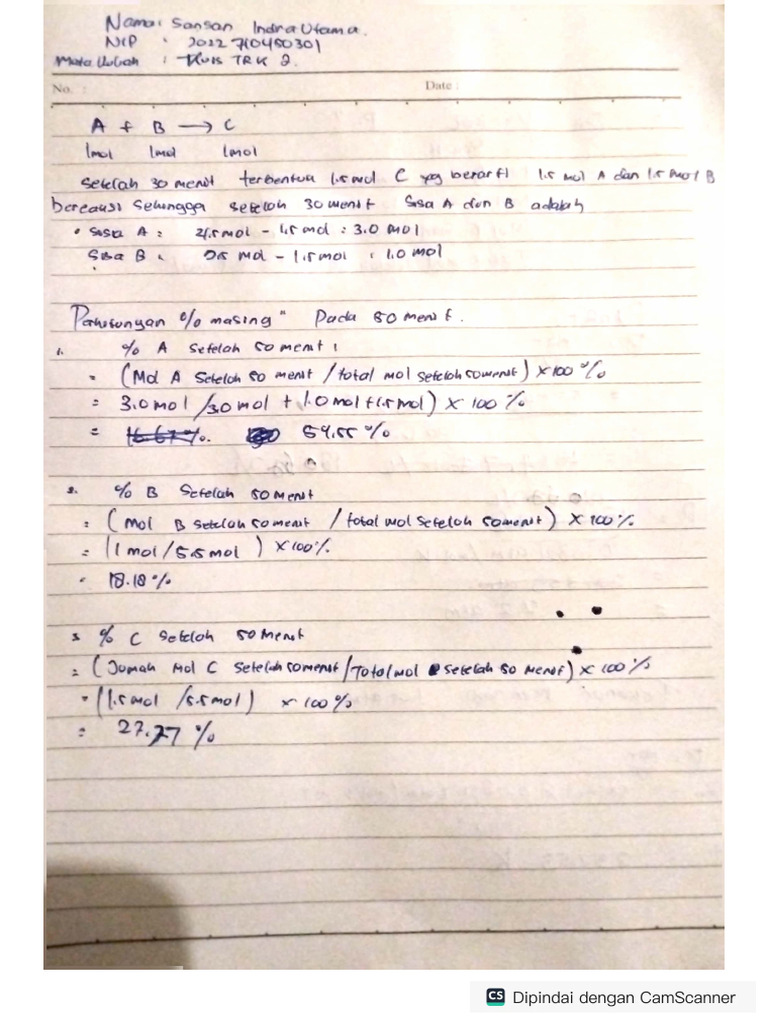 Nama: Sansan Indra Utama.
NIP : 2022 710450301
Mata Kuliah : Kuis TRK 2.
No. : Date :
A + B → C
1mol 1mol 1mol
Setelah 30 menit terbentuk 1.5 mol C yg berarti 1.5 mol A dan 1.5 mol B
bereaksi Sehingga setelah 30 menit Sisa A dan B adalah
• Sisa A = 4.5 mol - 1.5 mol = 3.0 mol
Sisa B = 2.5 mol - 1.5 mol = 1.0 mol
Perhitungan % masing" Pada 50 menit.
1. % A Setelah 50 menit :
= (Mol A Setelah 50 menit / total mol Setelah 50 menit) x 100 %
= 3.0 mol / 3.0 mol + 1.0 mol + 1.5 mol) x 100 %
= 54.55 %
2. % B Setelah 50 menit
= (Mol B Setelah 50 menit / total mol Setelah 50 menit) x 100 %
= (1 mol / 5.5 mol) x 100 %
= 18.18 %
3 % C Setelah 50 Menit
= (Jumah Mol C Setelah 50 menit / Total mol Setelah 50 Menit) x 100 %
= (1.5 mol / 5.5 mol) x 100 %
= 27.27 %
CS Dipindai dengan CamScanner